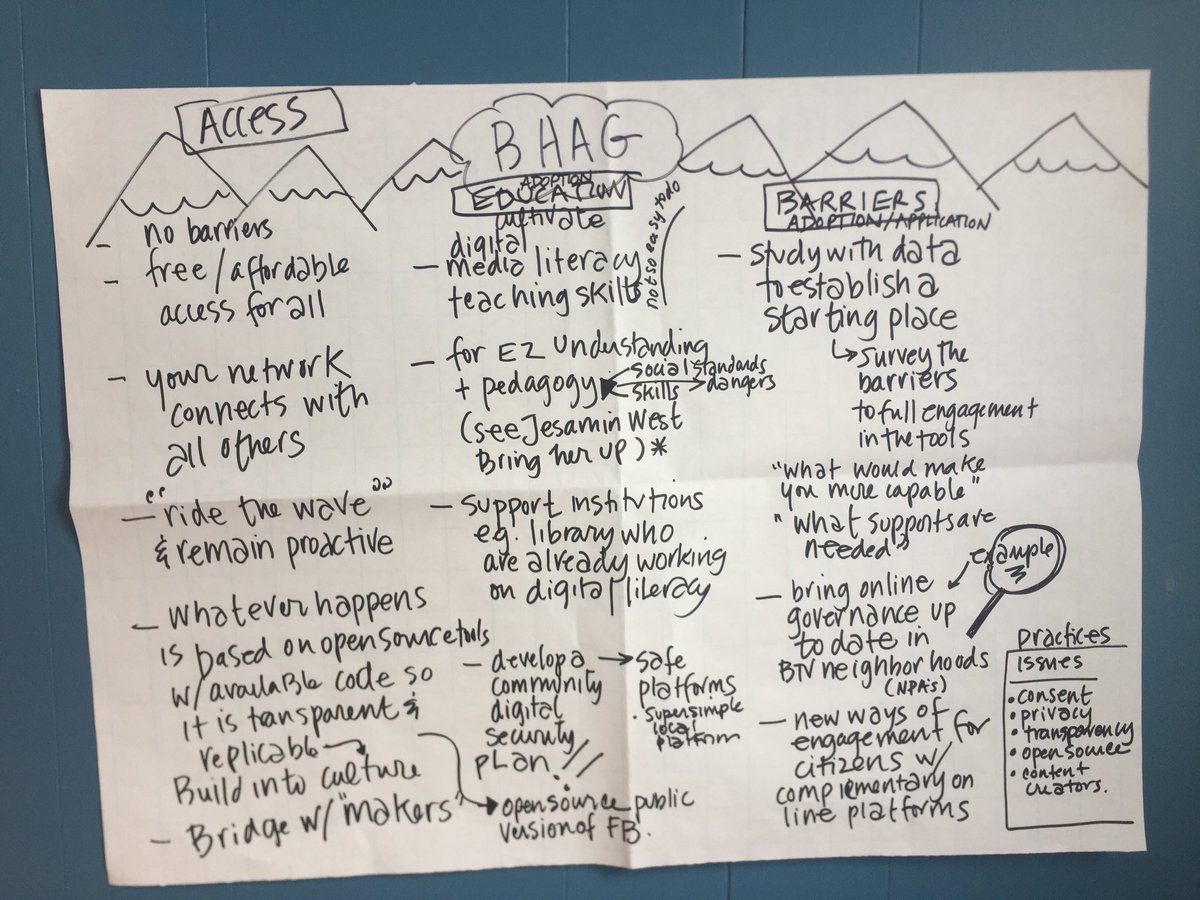 ACCESS
no barriers
free/affordable
access for all
your network
connects with
all others
"ride the wave"
& remain proactive
whatever happens
is based on open source tools
w/available code so
it is transparent &
replicable
Build into culture
Bridge w/ "makers"
BHAG
ADOPTION
EDUCATION
cultivate
digital
media literacy
teaching skills
not so easy to do
for EZ understanding
+ pedagogy
social standards
dangers
skills
(see Jesamin West
Bring her up) *
support institutions
e.g. library who
are already working
on digital literacy
develop a
community
digital
security
PLAN!!
safe
platforms
• supersimple
local
platform
open source public
version of FB.
BARRIERS
ADOPTION/APPLICATION
study with data
to establish a
starting place
survey the
barriers
to full engagement
in the tools
"what would make
you more capable"
"what supports are
needed"
example
bring online
governance up
to date in
BTV neighborhoods
(NPA's)
new ways of
engagement for
citizens w/
complementary on
line platforms
Practices
ISSUES
• consent
• privacy
• transparency
• open source
• content
creators.